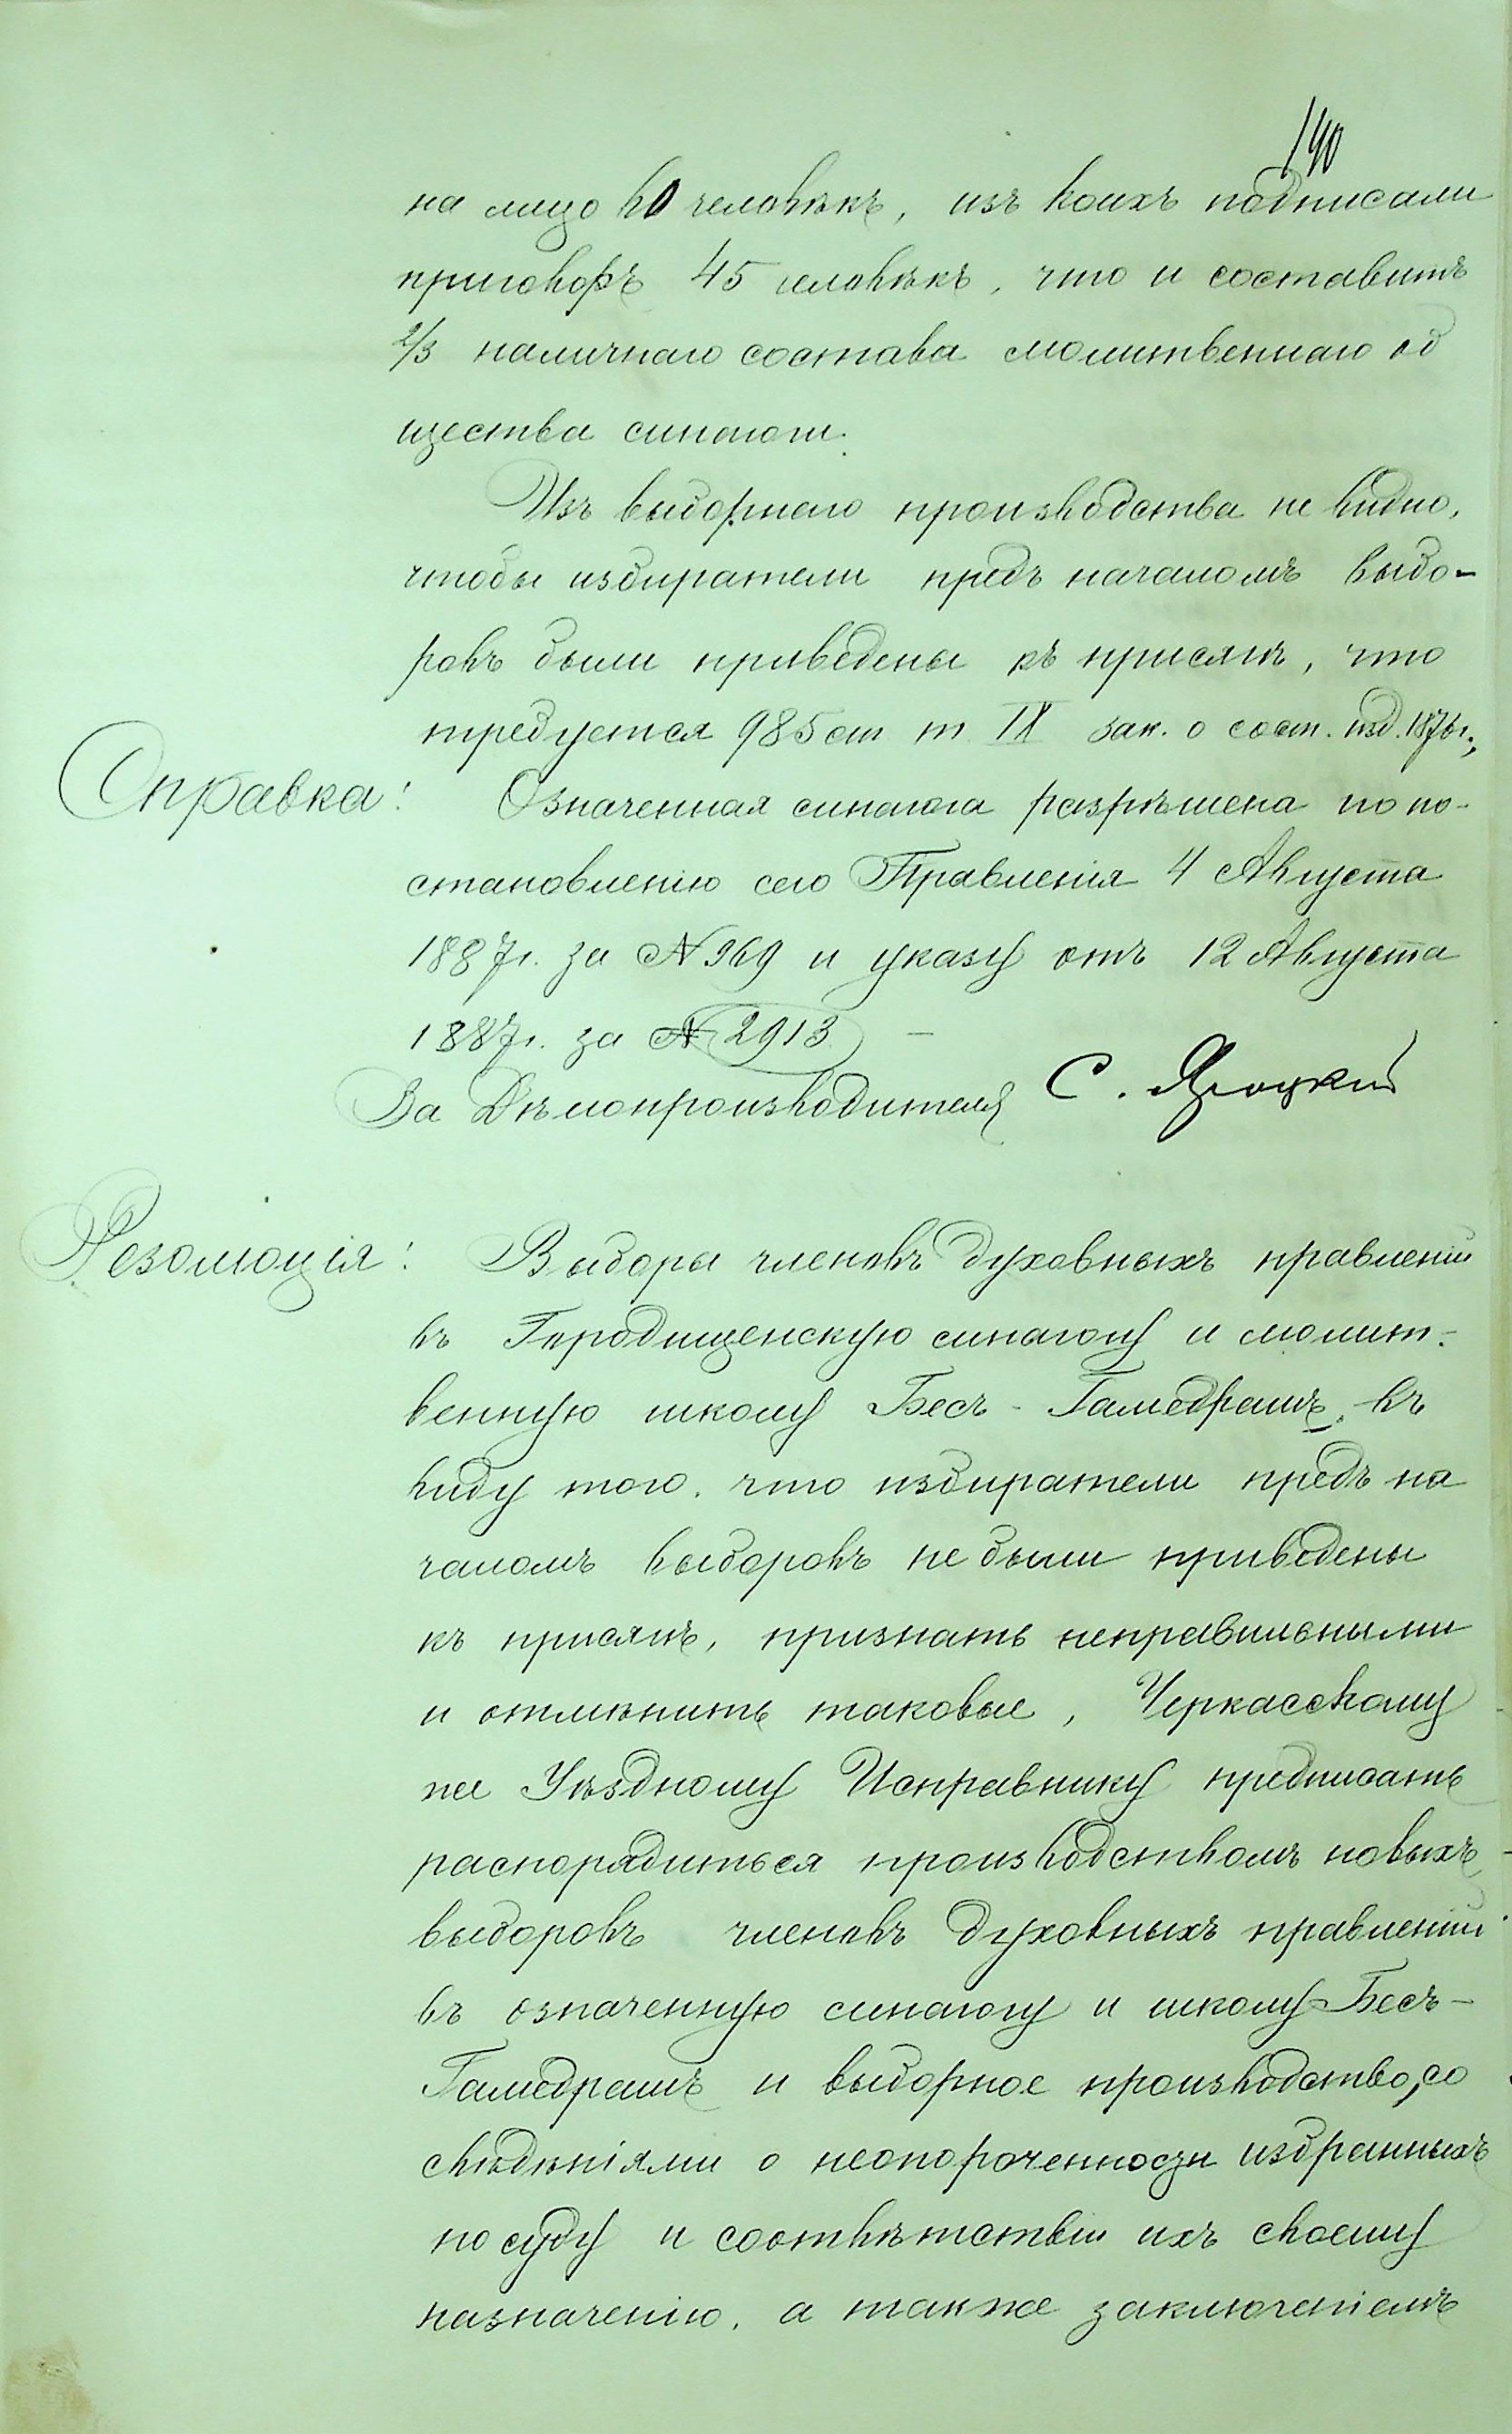 140
на лицо 60 человѣкъ, изъ коихъ подписали
приговоръ 45 человѣкъ, что и составитъ
2/3 наличнаго состава молитвеннаго об
щества синагоги.
Изъ выборнаго производства не видно,
чтобы избиратели предъ началомъ выбо-
ровъ были приведены къ присягѣ, что
требуется 985 ст т. IX зак. о сост. изд. 1876 г.,
Справка: Означенная синагога разрѣшена по по-
становленію сего Правленія 4 Августа
1887 г. за № 969 и указу отъ 12 Августа
1887 г. за № 2913 —
За Дѣлопроизводителя С.
Резолюція: Выборы членовъ духовныхъ правленій
въ Городищенскую синагогу и молит-
венную школу Бесъ-Гамедрашъ, въ
виду того, что избиратели предъ на
чаломъ выборовъ не были приведены
къ присягѣ, признать неправильными
и отмѣнить таковые, Черкасскому
же Уѣздному Исправнику предписать
распорядиться производствомъ новыхъ
выборовъ членовъ духовныхъ правленій
въ означенную синагогу и школу Бесъ-
Гамедрашъ и выборное производство, со
свѣдѣніями о неопороченности избранныхъ
по суду и соотвѣтствіи ихъ своему
назначенію, а также заключеніемъ